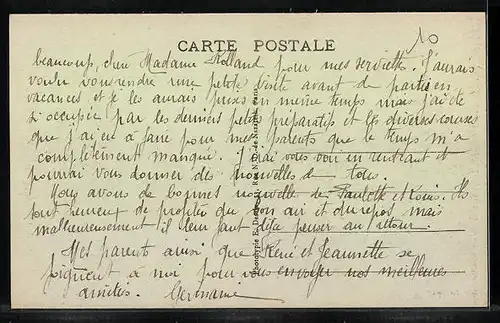 10
CARTE POSTALE
beaucoup, chère Madame Rolland pour mes serviettes. J'aurais
voulu vous rendre une petite visite avant de partir en
vacances et je les aurais prises en même temps mais j'ai été
si occupée par les derniers petits préparatifs et les diverses courses
que j'ai eu à faire pour mes parents que le temps m'a
complètement manqué. J'irai vous voir en rentrant et
pourrai vous donner des nouvelles de tous.
Nous avons de bonnes nouvelles de Paulette et Louis. Ils
sont heureux de profiter du bon air et du repos mais
malheureusement il leur faut déjà penser au retour.
Mes parents ainsi que René et Jeannette se
joignent à moi pour vous envoyer nos meilleures
amitiés. Germaine
Phototypie